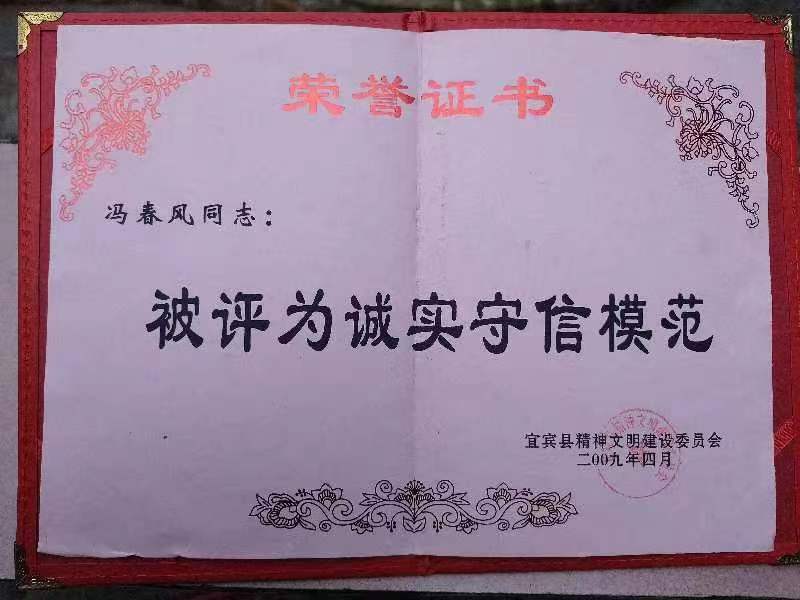 荣誉证书
冯春风同志：
被评为诚实守信模范
宜宾县精神文明建设委员会
二00九年四月